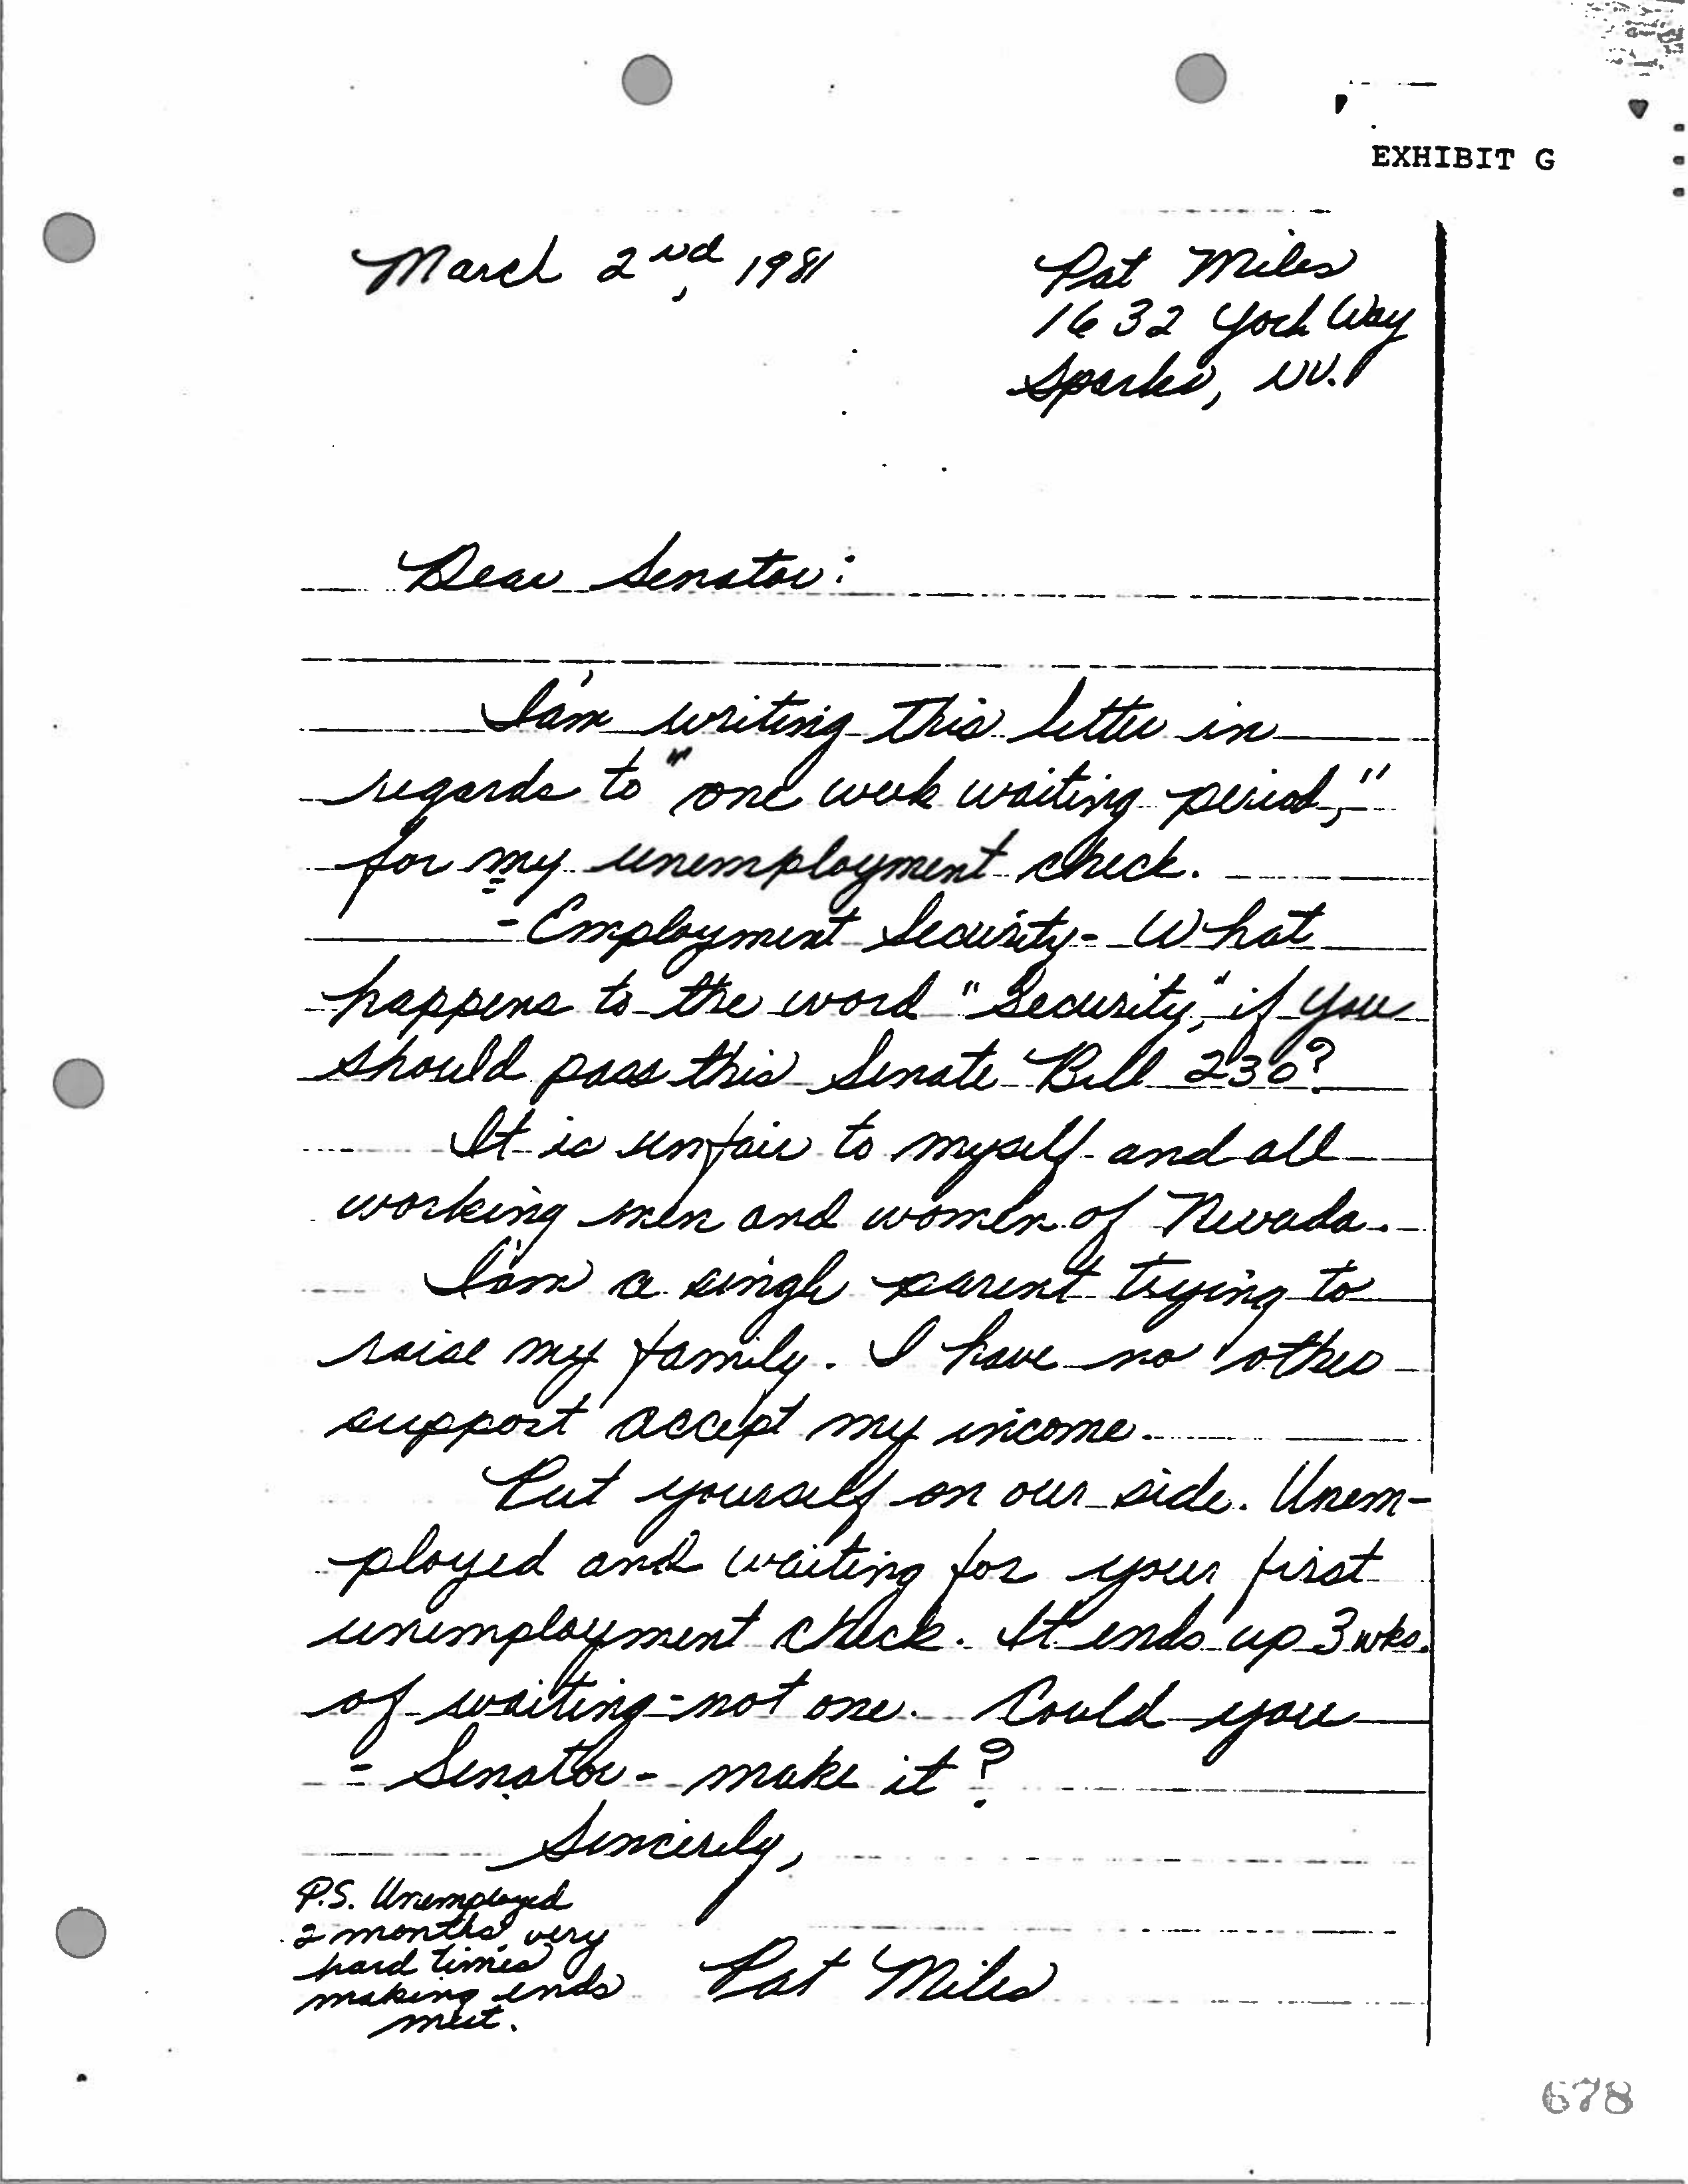 EXHIBIT G
March 2nd, 1981
Pat Miles
1632 York Way
Sparks, NV.
Dear Senator:
I'am writing this letter in
regards to "one week waiting period,"
for my unemployment check.
- Employment Security - What
happens to the word "Security," if you
should pass this Senate Bill 230?
It is unfair to myself and all
working men and women of Nevada.
I'am a single parent trying to
raise my family. I have no other
support accept my income.
Put yourself on our side. Unem-
ployed and waiting for your first
unemployment check. It ends up 3 wks.
of waiting - not one. Could you
- Senator - make it?
Sincerely,
P.S. Unemployed
2 months, very
hard times
making ends
meet.
Pat Miles
678